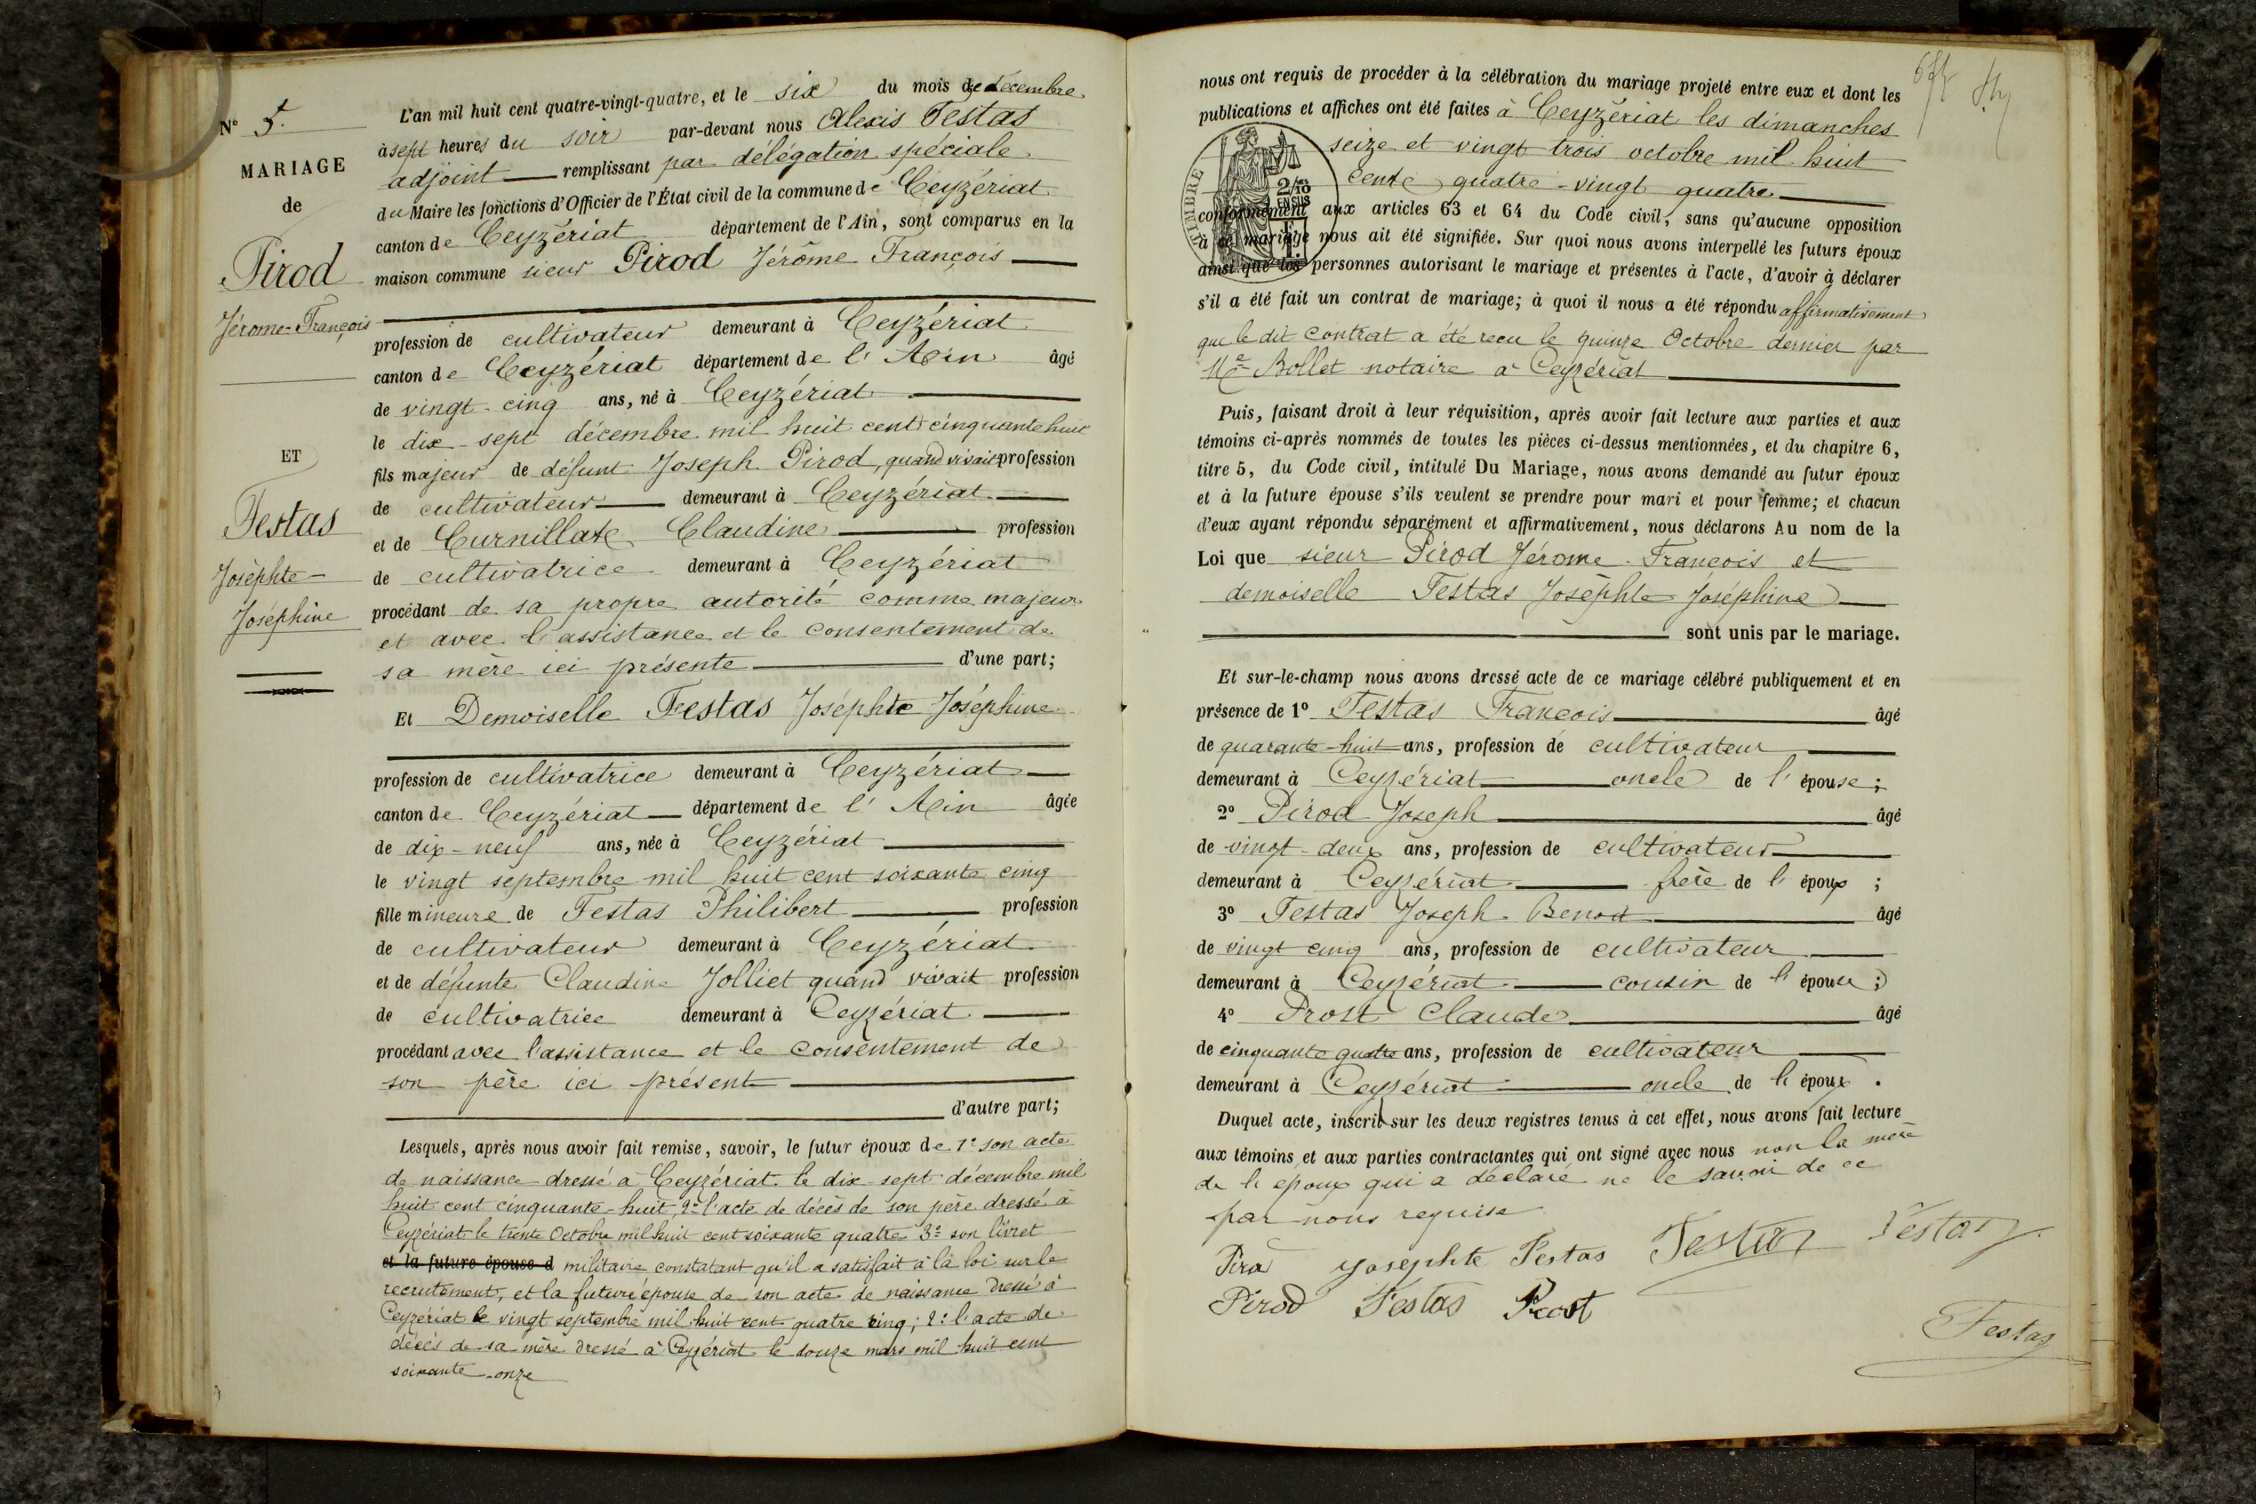 N° 5.
MARIAGE
de
Pirod
Jérome-François
ET
Festas
Joséphte-
Joséphine
L'an mil huit cent quatre-vingt-quatre, et le six du mois de décembre
à sept heures du soir par-devant nous Alexis Festas
adjoint remplissant par délégation spéciale
du Maire les fonctions d'Officier de l'État civil de la commune de Ceyzériat
canton de Ceyzériat département de l'Ain, sont comparus en la
maison commune sieur Pirod Jérôme François
profession de cultivateur demeurant à Ceyzériat
canton de Ceyzériat département de l'Ain âgé
de vingt-cinq ans, né à Ceyzériat
le dix-sept décembre mil huit cent cinquante huit
fils majeur de défunt Joseph Pirod, quand vivait profession
de cultivateur demeurant à Ceyzériat
et de Curnillate Claudine profession
de cultivatrice demeurant à Ceyzériat
procédant de sa propre autorité comme majeur
et avec l'assistance et le consentement de
sa mère ici présente d'une part;
Et Demoiselle Festas Joséphte Joséphine
profession de cultivatrice demeurant à Ceyzériat
canton de Ceyzériat département de l'Ain âgée
de dix-neuf ans, née à Ceyzériat
le vingt septembre mil huit cent soixante cinq
fille mineure de Festas Philibert profession
de cultivateur demeurant à Ceyzériat
et de défunte Claudine Jolliet quand vivait profession
de cultivatrice demeurant à Ceyzériat
procédant avec l'assistance et le consentement de
son père ici présent
d'autre part;
Lesquels, après nous avoir fait remise, savoir, le futur époux de 1° son acte
de naissance dressé à Ceyzériat le dix-sept décembre mil
huit cent cinquante-huit, 2° l'acte de décès de son père dressé à
Ceyzériat le trente Octobre mil huit cent soixante quatre 3° son livret
et la future épouse d militaire constatant qu'il a satisfait à la loi sur le
recrutement, et la future épouse de son acte de naissance dressé à
Ceyzériat le vingt septembre mil huit cent quatre cinq; 2° l'acte de
décès de sa mère dressé à Ceyzériat le douze mars mil huit cent
soixante-onze
nous ont requis de procéder à la célébration du mariage projeté entre eux et dont les
publications et affiches ont été faites à Ceyzériat les dimanches
seize et vingt trois octobre mil huit
cent quatre-vingt quatre
TIMBRE
2/10es
EN SUS
conformément aux articles 63 et 64 du Code civil, sans qu'aucune opposition
à ce mariage nous ait été signifiée. Sur quoi nous avons interpellé les futurs époux
ainsi que les personnes autorisant le mariage et présentes à l'acte, d'avoir à déclarer
s'il a été fait un contrat de mariage; à quoi il nous a été répondu affirmativement
que le dit contrat a été recu le quinze Octobre dernier par
Me Bollet notaire à Ceyzériat
Puis, faisant droit à leur réquisition, après avoir fait lecture aux parties et aux
témoins ci-après nommés de toutes les pièces ci-dessus mentionnées, et du chapitre 6,
titre 5, du Code civil, intitulé Du Mariage, nous avons demandé au futur époux
et à la future épouse s'ils veulent se prendre pour mari et pour femme; et chacun
d'eux ayant répondu séparément et affirmativement, nous déclarons Au nom de la
Loi que sieur Pirod Jérome François et
demoiselle Festas Joséphte Joséphine
sont unis par le mariage.
Et sur-le-champ nous avons dressé acte de ce mariage célébré publiquement et en
présence de 1° Festas François âgé
de quarante-huit ans, profession de cultivateur
demeurant à Ceyzériat oncle de l'épouse;
2° Pirod Joseph âgé
de vingt-deux ans, profession de cultivateur
demeurant à Ceyzériat frère de l'époux;
3° Festas Joseph Benoit âgé
de vingt cinq ans, profession de cultivateur
demeurant à Ceyzériat cousin de l'épouse;
4° Prost Claude âgé
de cinquante quatre ans, profession de cultivateur
demeurant à Ceyzériat oncle de l'époux.
Duquel acte, inscrit sur les deux registres tenus à cet effet, nous avons fait lecture
aux témoins et aux parties contractantes qui ont signé avec nous non la mère
de l'époux qui a déclaré ne le savoir de ce
par nous requise
Pirod Josephte Festas Festas Festas
Pirod Festas Prost
Festas